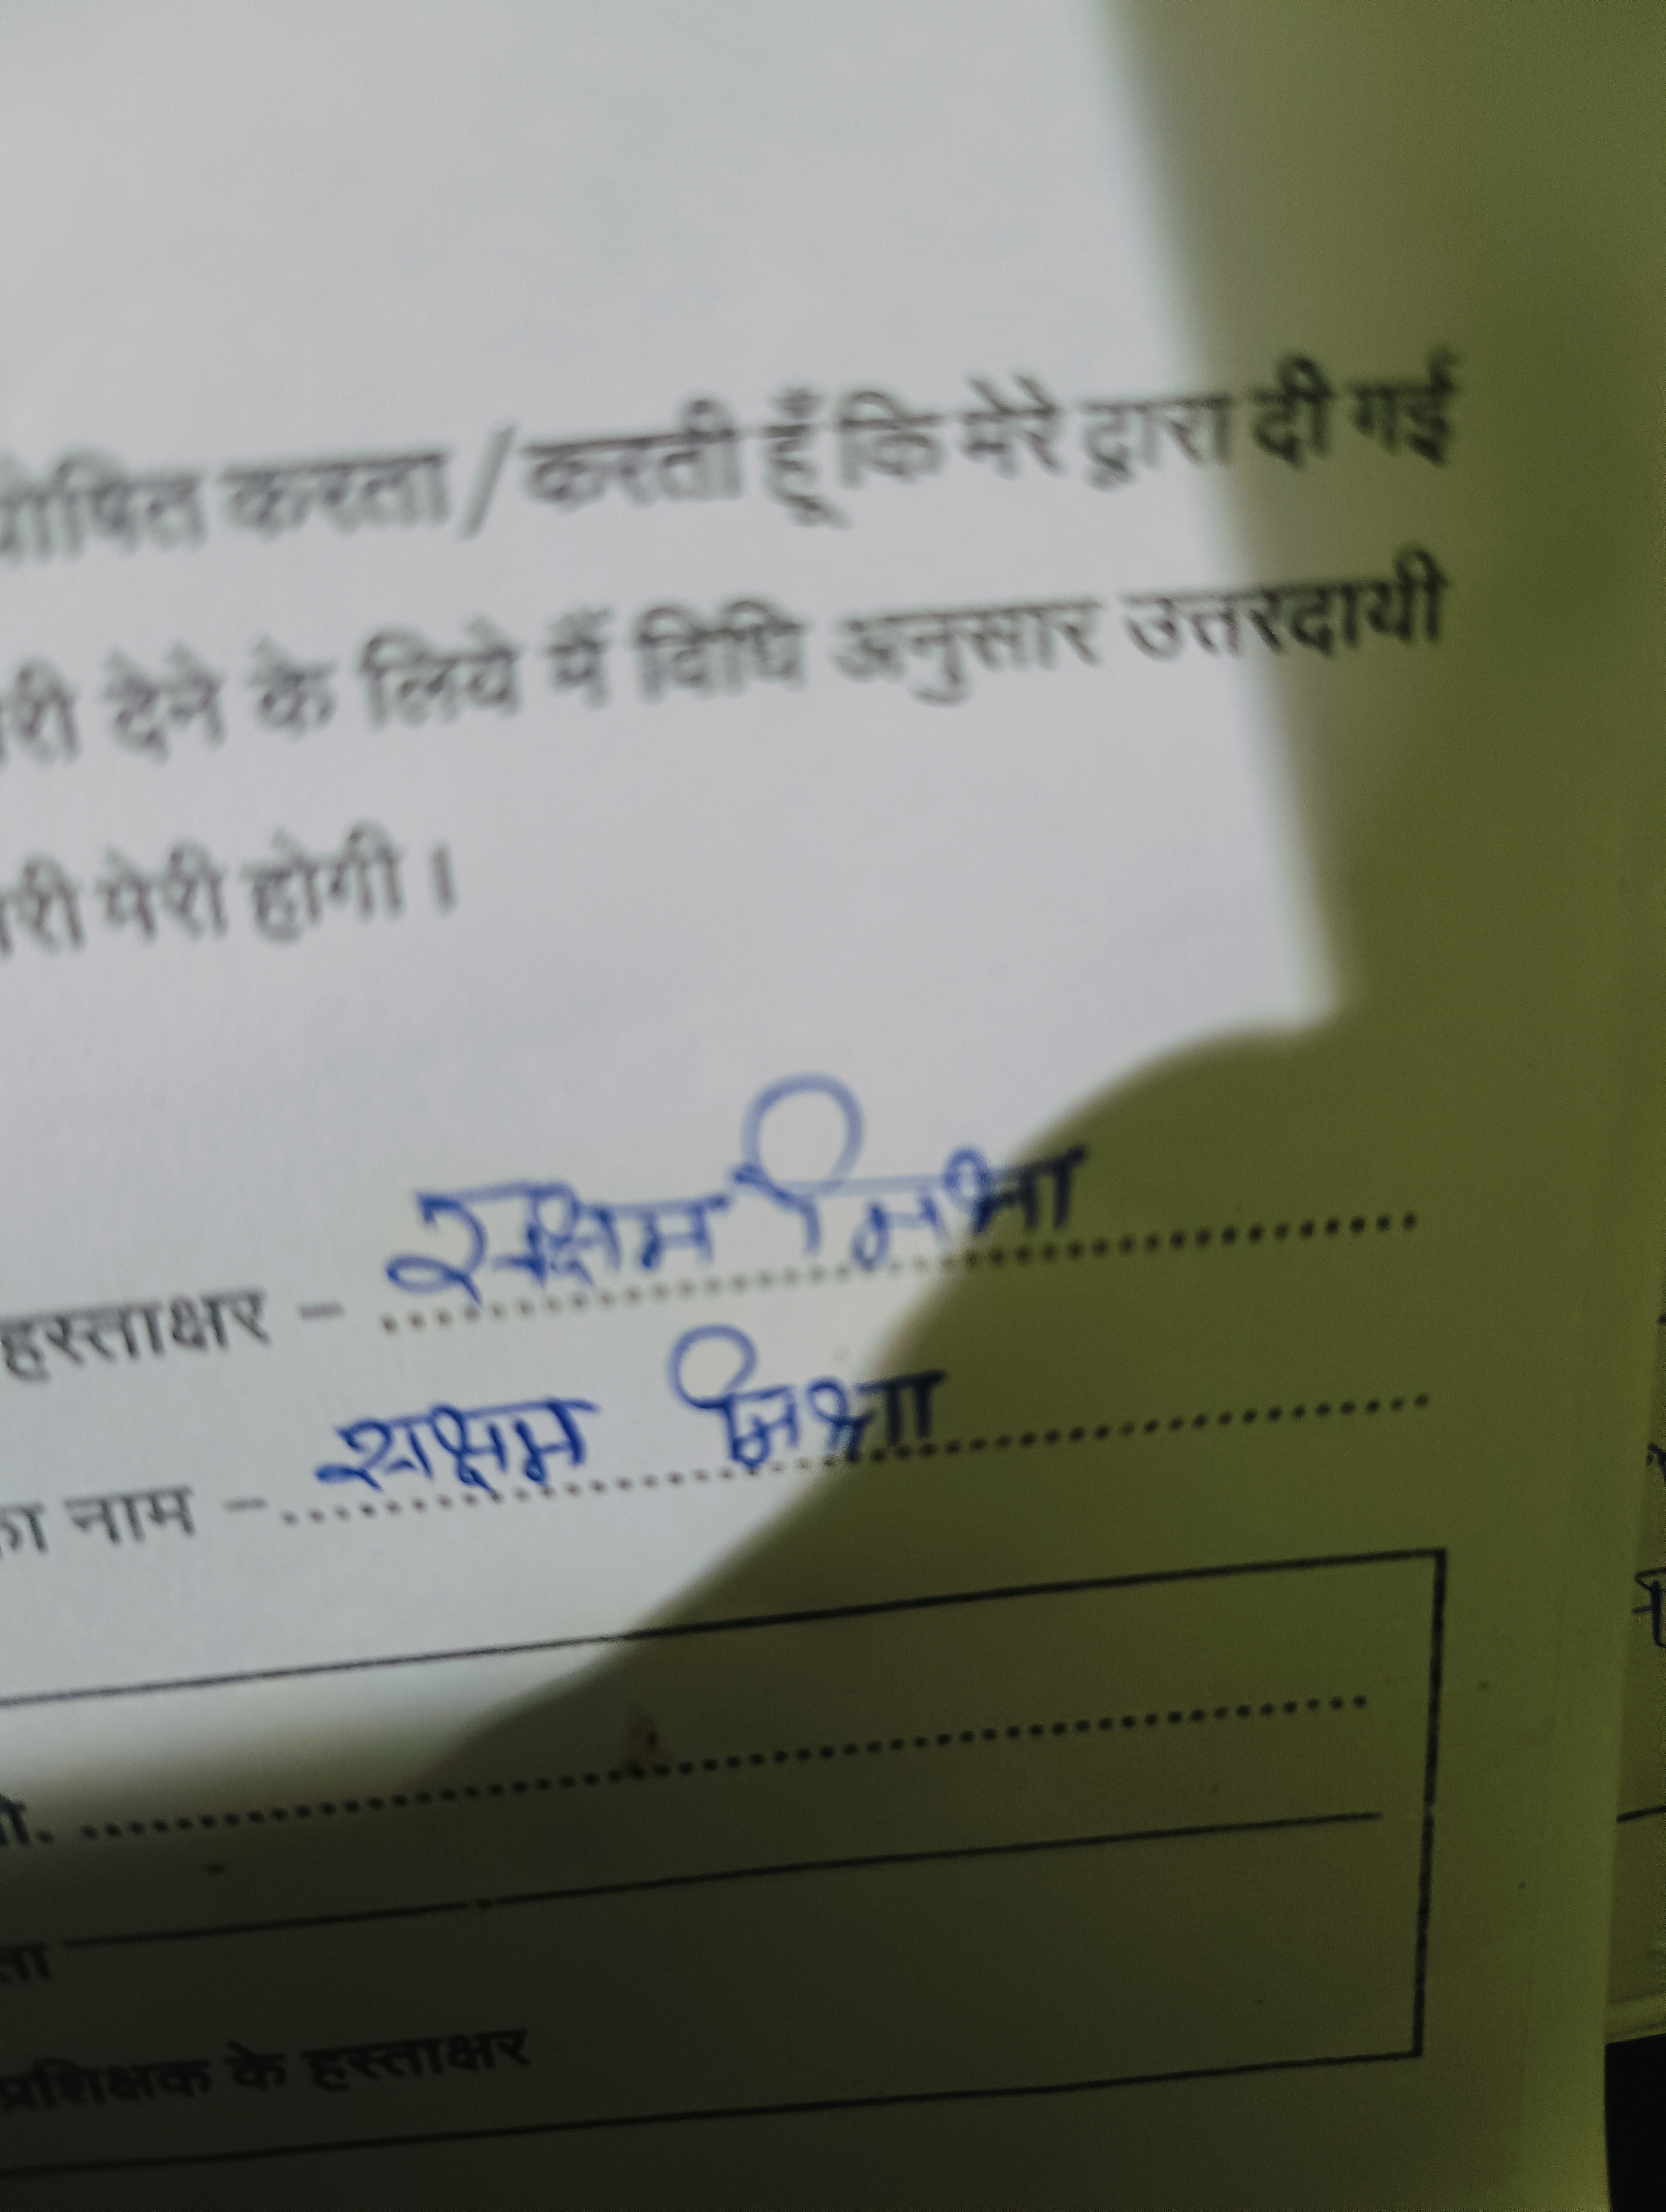 घोषित करता / करती हूँ कि मेरे द्वारा दी गई
री देने के लिये मैं विधि अनुसार उत्तरदायी
री मेरी होगी ।
हस्ताक्षर - सक्षम मिश्रा
का नाम - सक्षम मिश्रा
प्रशिक्षक के हस्ताक्षर